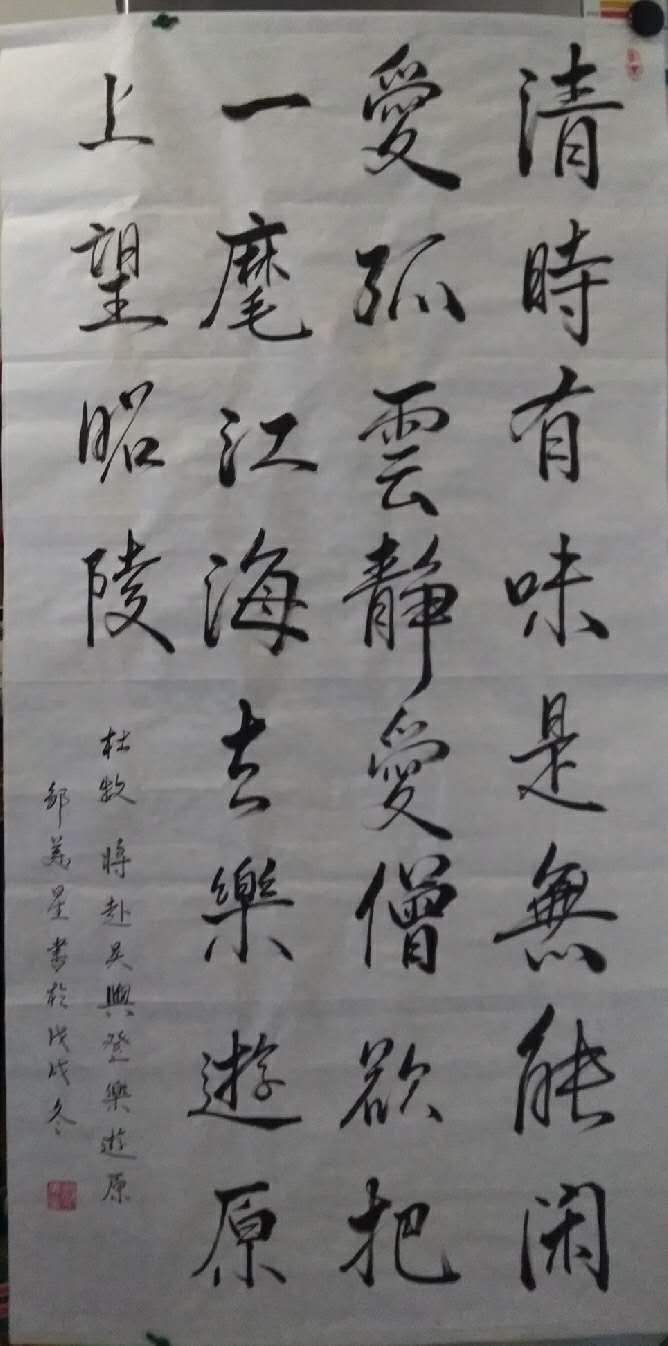 清時有味是無能閑
愛孤雲靜愛僧欲把
一麾江海去樂遊原
上望昭陵
杜牧 將赴吳興登樂遊原
鄒美星書於戊戌冬